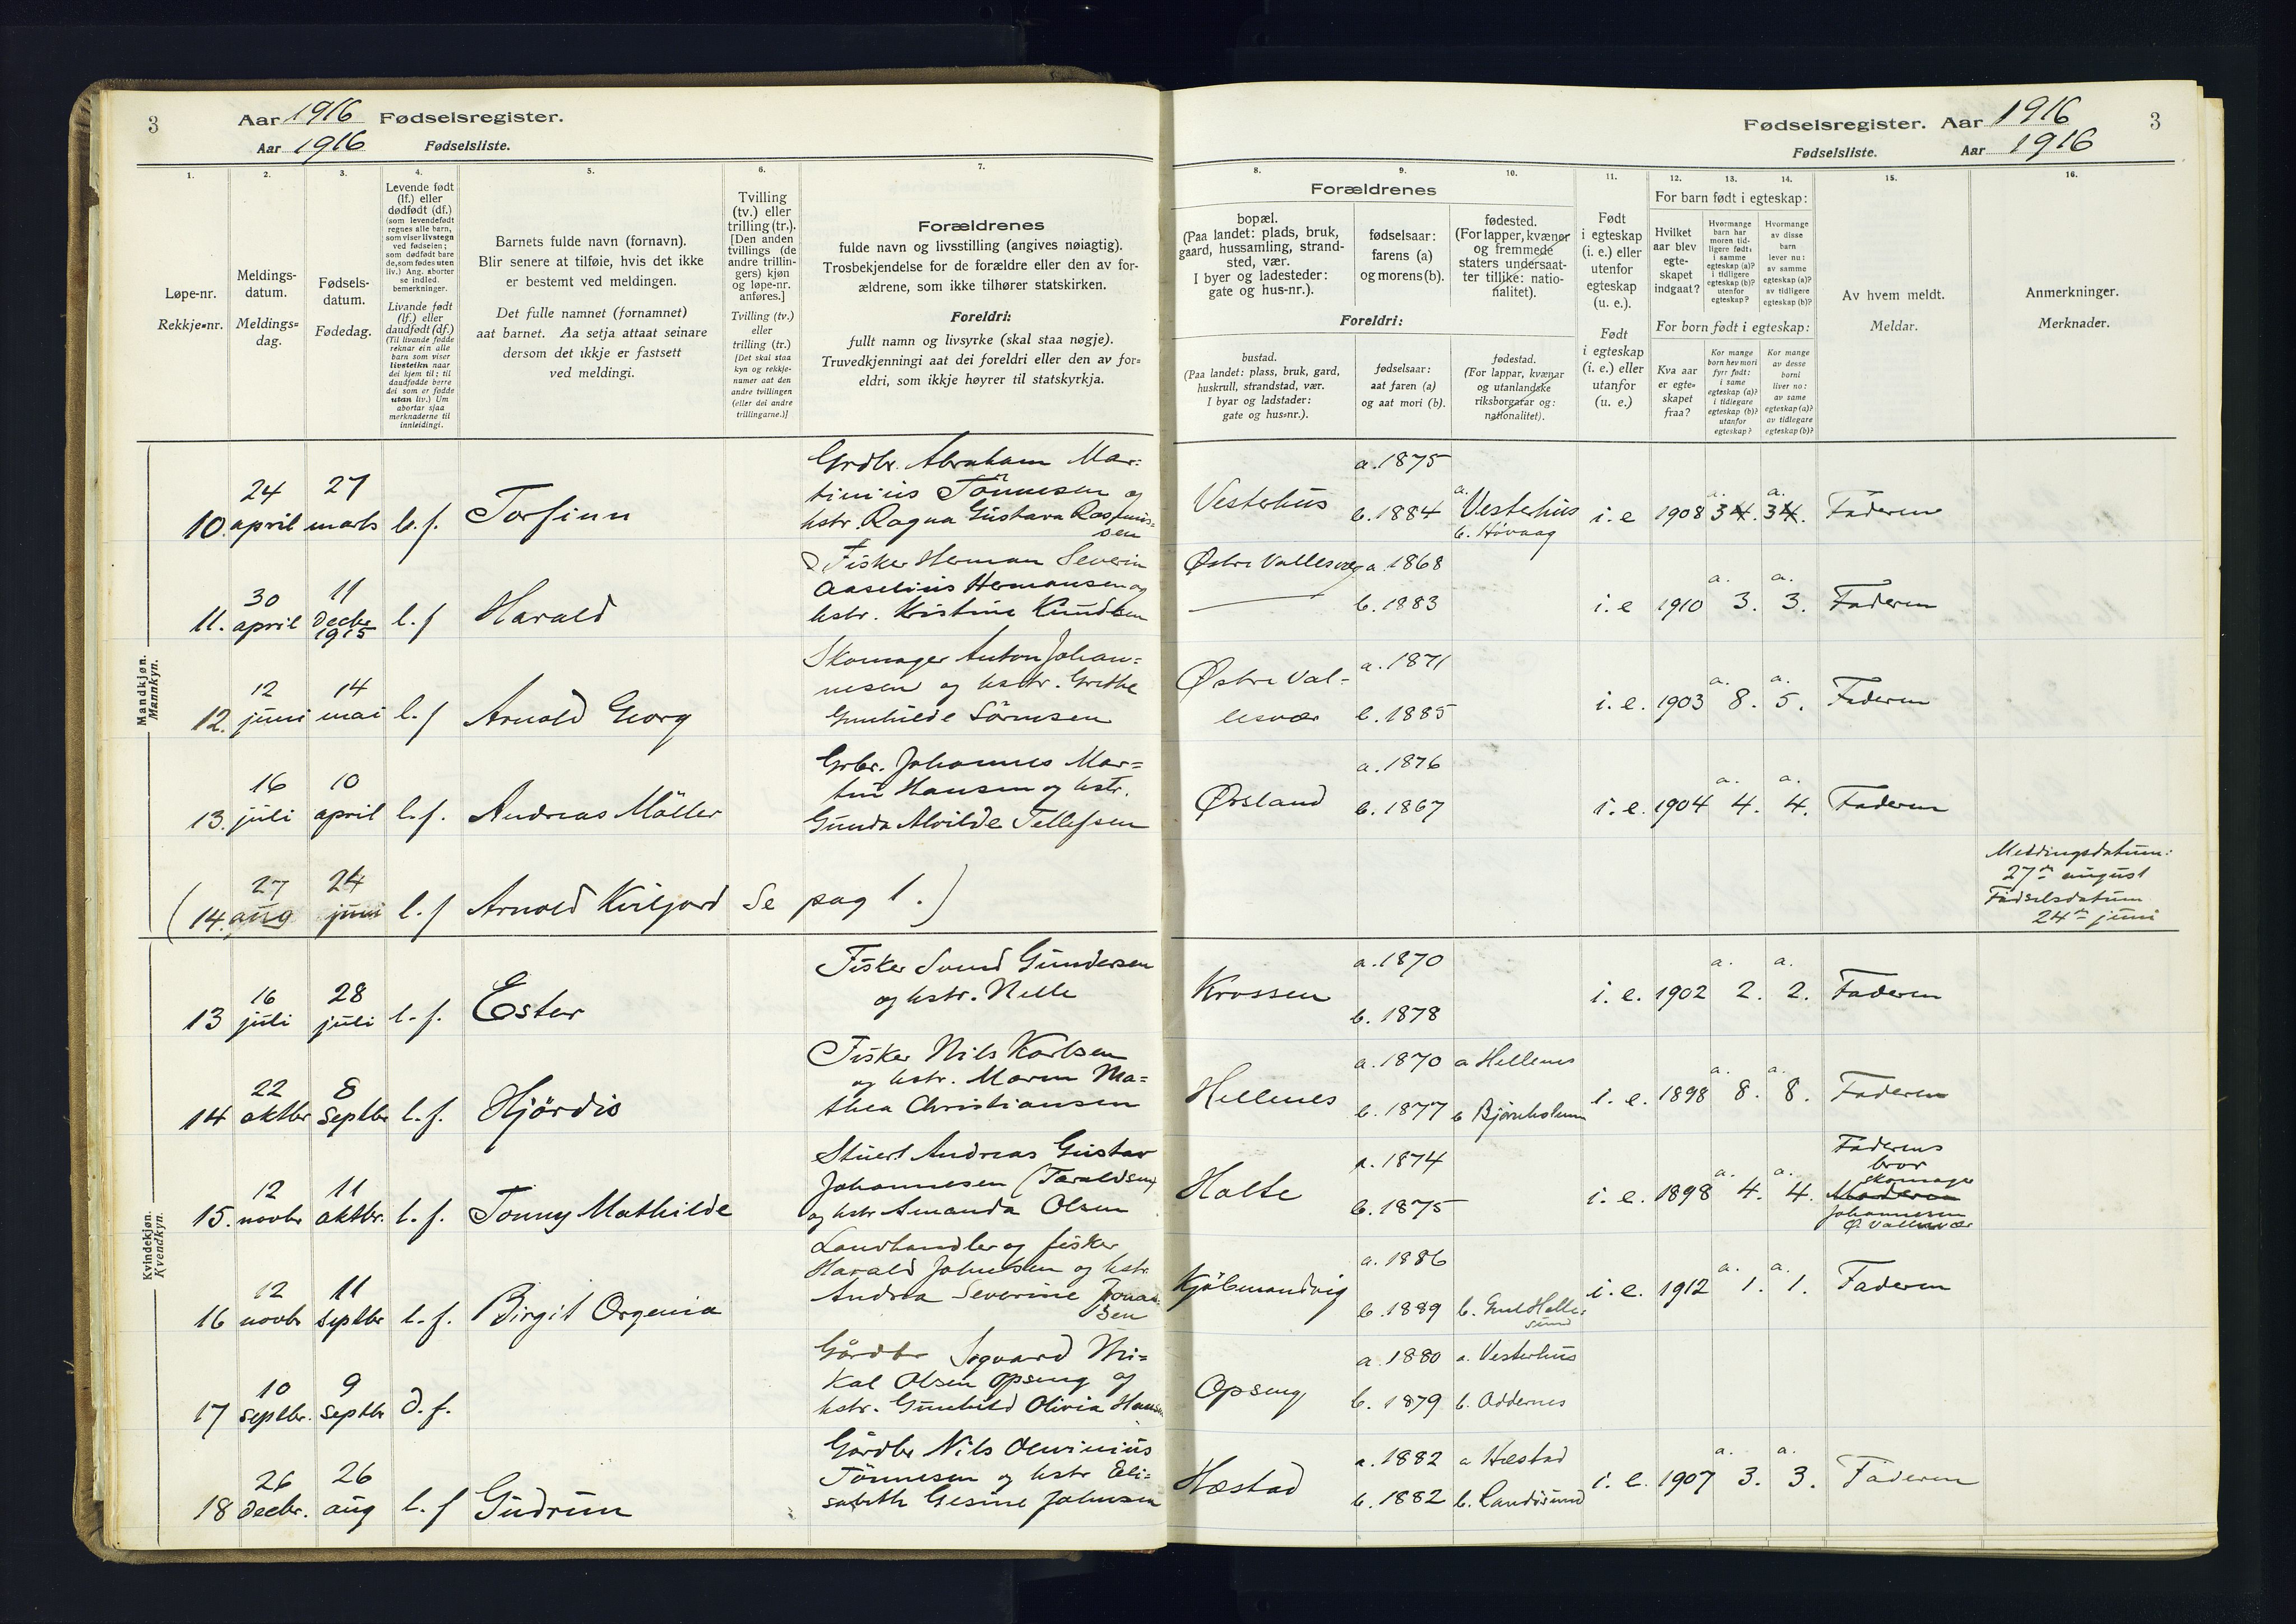 3
Aar 1916 Fødselsregister.
Aar 1916 Fødselsliste.
1.
Løpe-nr.
Rekkje-nr.
2.
Meldings-
datum.
Meldings-
dag.
3.
Fødsels-
datum.
Fødedag.
4.
Levende født
(lf.) eller
dødfødt (df.)
(som levendefødt
regnes alle barn,
som viser livstegn
ved fødselen;
som dødfødt bare
de, som fødes uten
liv.) Ang. aborter
se indled.
bemerkninger.
Livande født
(lf.) eller
daudfødt (df.)
(Til livande fødde
reknar ein alle
barn som viser
livsteikn naar
dei kjem til; til
daudfødde berre
dei som er fødde
utan liv.) Um
abortar sjaa
merknaderne til
innleidingi.
5.
Barnets fulde navn (fornavn).
Blir senere at tilføie, hvis det ikke
er bestemt ved meldingen.
Det fulle namnet (fornamnet)
aat barnet. Aa setja attaat seinare
dersom det ikkje er fastsett
ved meldingi.
6.
Tvilling
(tv.) eller
trilling (tr.).
[Den anden
tvillings (de
andre trillin-
gers) kjøn
og løpe-nr.
anføres.]
Tvilling (tv.)
eller
trilling (tr.)
[Det skal staa
kyn og rekkje-
numer aat den
andre tvillingen
(eller dei andre
trillingarne.)]
7.
Forældrenes
fulde navn og livsstilling (angives nøiagtig).
Trosbekjendelse for de forældre eller den av for-
ældrene, som ikke tilhører statskirken.
Foreldri:
fullt namn og livsyrke (skal staa nøgje).
Truvedkjenningi aat dei foreldri eller den av for-
eldri, som ikkje høyrer til statskyrkja.
Fødselsregister. Aar 1916
3
Fødselsliste. Aar 1916
8.
Forældrenes
bopæl.
(Paa landet: plads, bruk,
gaard, hussamling, strand-
sted, vær.
I byer og ladesteder:
gate og hus-nr.).
Foreldri:
bustad.
(Paa landet: plass, bruk, gard,
huskrull, strandstad, vær.
I byar og ladstader:
gate og hus-nr.).
9.
fødselsaar:
farens (a)
og morens (b).
fødselsaar:
aat faren (a)
og aat mori (b).
10.
fødested.
(For lapper, kvæner
og fremmede
staters undersaat-
ter tillike: natio-
nalitet).
fødestad.
(For lappar, kvænar
og utanlandske
riksborgarar og:
nationalitet).
11.
Født
i egteskap
(i. e.) eller
utenfor
egteskap
(u. e.).
Født
i egteskap
(i. e.) eller
utanfor
(u. e.)
12.
13.
14.
For barn født i egteskap:
Hvilket
aar blev
egte-
skapet
indgaat?
Hvormange
barn har
moren tid-
ligere født:
i samme
egteskap (a)?
i tidligere
egteskap (b)?
utenfor
egteskap?
Hvormange
av disse
barn
lever nu:
av samme
egteskap (a)?
av tidligere
egteskap (b)?
For born født i egteskap:
Kva aar
er egte-
skapet
fraa?
Kor mange
born hev mori
fyrr født:
i same
egteskap (a)?
i tidlegare
egteskap (b)?
utanfor
egteskap?
Kor mange
av desse
borni
liver no:
av same
egteskap (a)?
av tidlegare
egteskap (b)?
15.
Av hvem meldt.
Meldar.
16.
Anmerkninger.
Merknader.
Mandkjøn.
Mannkyn.
10. 24 april 27 marts l. f. Torfinn
Grdbr. Abraham Mar-
tinius Tönnesen og
hstr. Ragna Gustava Rasmus-
sen
Vesterhus a. 1875 b. 1884 a. Vesterhus b. Høvaag i. e 1908 a. 3 4. a. 3 4. Faderen
11. 30 april 11 decbr 1915 l. f Harald
Fisker Herman Severin
Aaselius Hermansen og
hstr. Kristine Knudsen
Østre Vallesvær a. 1868 b. 1883 i. e 1910 a. 3. a. 3. Faderen
12. 12 juni 14 mai l. f Arnold Georg
Skomager Anton Johan-
nesen og hustr. Grethe
Gunhilde Sörensen
Østre Val-
lesvær a. 1871 b. 1885 i. e. 1903 a. 8. a. 5. Faderen
13. 16 juli 10 april l. f. Andreas Möller
Grbr. Johannes Mar-
tin Hansen og hstr.
Gunda Alvilde Tellefsen
Ørsland a. 1876 b. 1867 i. e. 1904 a. 4. a. 4. Faderen
(14. 27 aug 24 juni l. f Arnold Kiiljord Se pag 1.)
Meldingsdatum:
27de august
Fødselsdatum
24de juni
Kvindekjøn.
Kvendkyn.
13 16 juli 28 juli l. f. Ester
Fisker Svend Gundersen
og hstr. Nelle
Krossen a. 1870 b. 1878 i. e. 1902 a. 2. a. 2. Faderen
14 22 oktbr 8 septbr l. f. Hjördis
Fisker Nils Karlsen
og hstr. Maren Ma-
thea Christiansen
Hellenes a. 1870 b. 1877 a Hellenes b Bjørnholmen i. e. 1898 a. 8. a. 8. Faderen
15. 12 novbr 11 oktbr. l. f. Tonny Mathilde
Stuert Andreas Gustav
Johannesen (Taraldsen)
og hstr Amanda Olsen
Holte a. 1874 b. 1875 i. e. 1898 a. 4. a. 4.
Faderens
bror
skomager
Moderen
Johannesen
Ø. Vallesvær
16 12 novbr 11 septbr l. f. Birgit Orgenia
Landhandler og fisker
Harald Johnsen og hstr.
Andrea Severine Jonas-
sen
Kjøbmandvig a. 1886 b. 1889 b. Gml Helle-
sund i. e. 1912 a. 1. a. 1. Faderen
17 10 septbr. 9 septbr d. f.
Gårdbr Sigvard Mi-
kal Olsen Opseng og
hstr. Gunhild Olivia Hansen
Opseng a. 1880 b. 1879 a. Vesterhus b. Oddernes
18 26 decbr. 26 aug l. f Gudrun
Gårdbr Nils Oluvinius
Tönnesen og hstr Eli-
sabeth Gesine Johnsen
Hæstad a. 1882 b. 1882 a Hæstad b. Randøsund i. e. 1907 a. 3. a. 3. Faderen